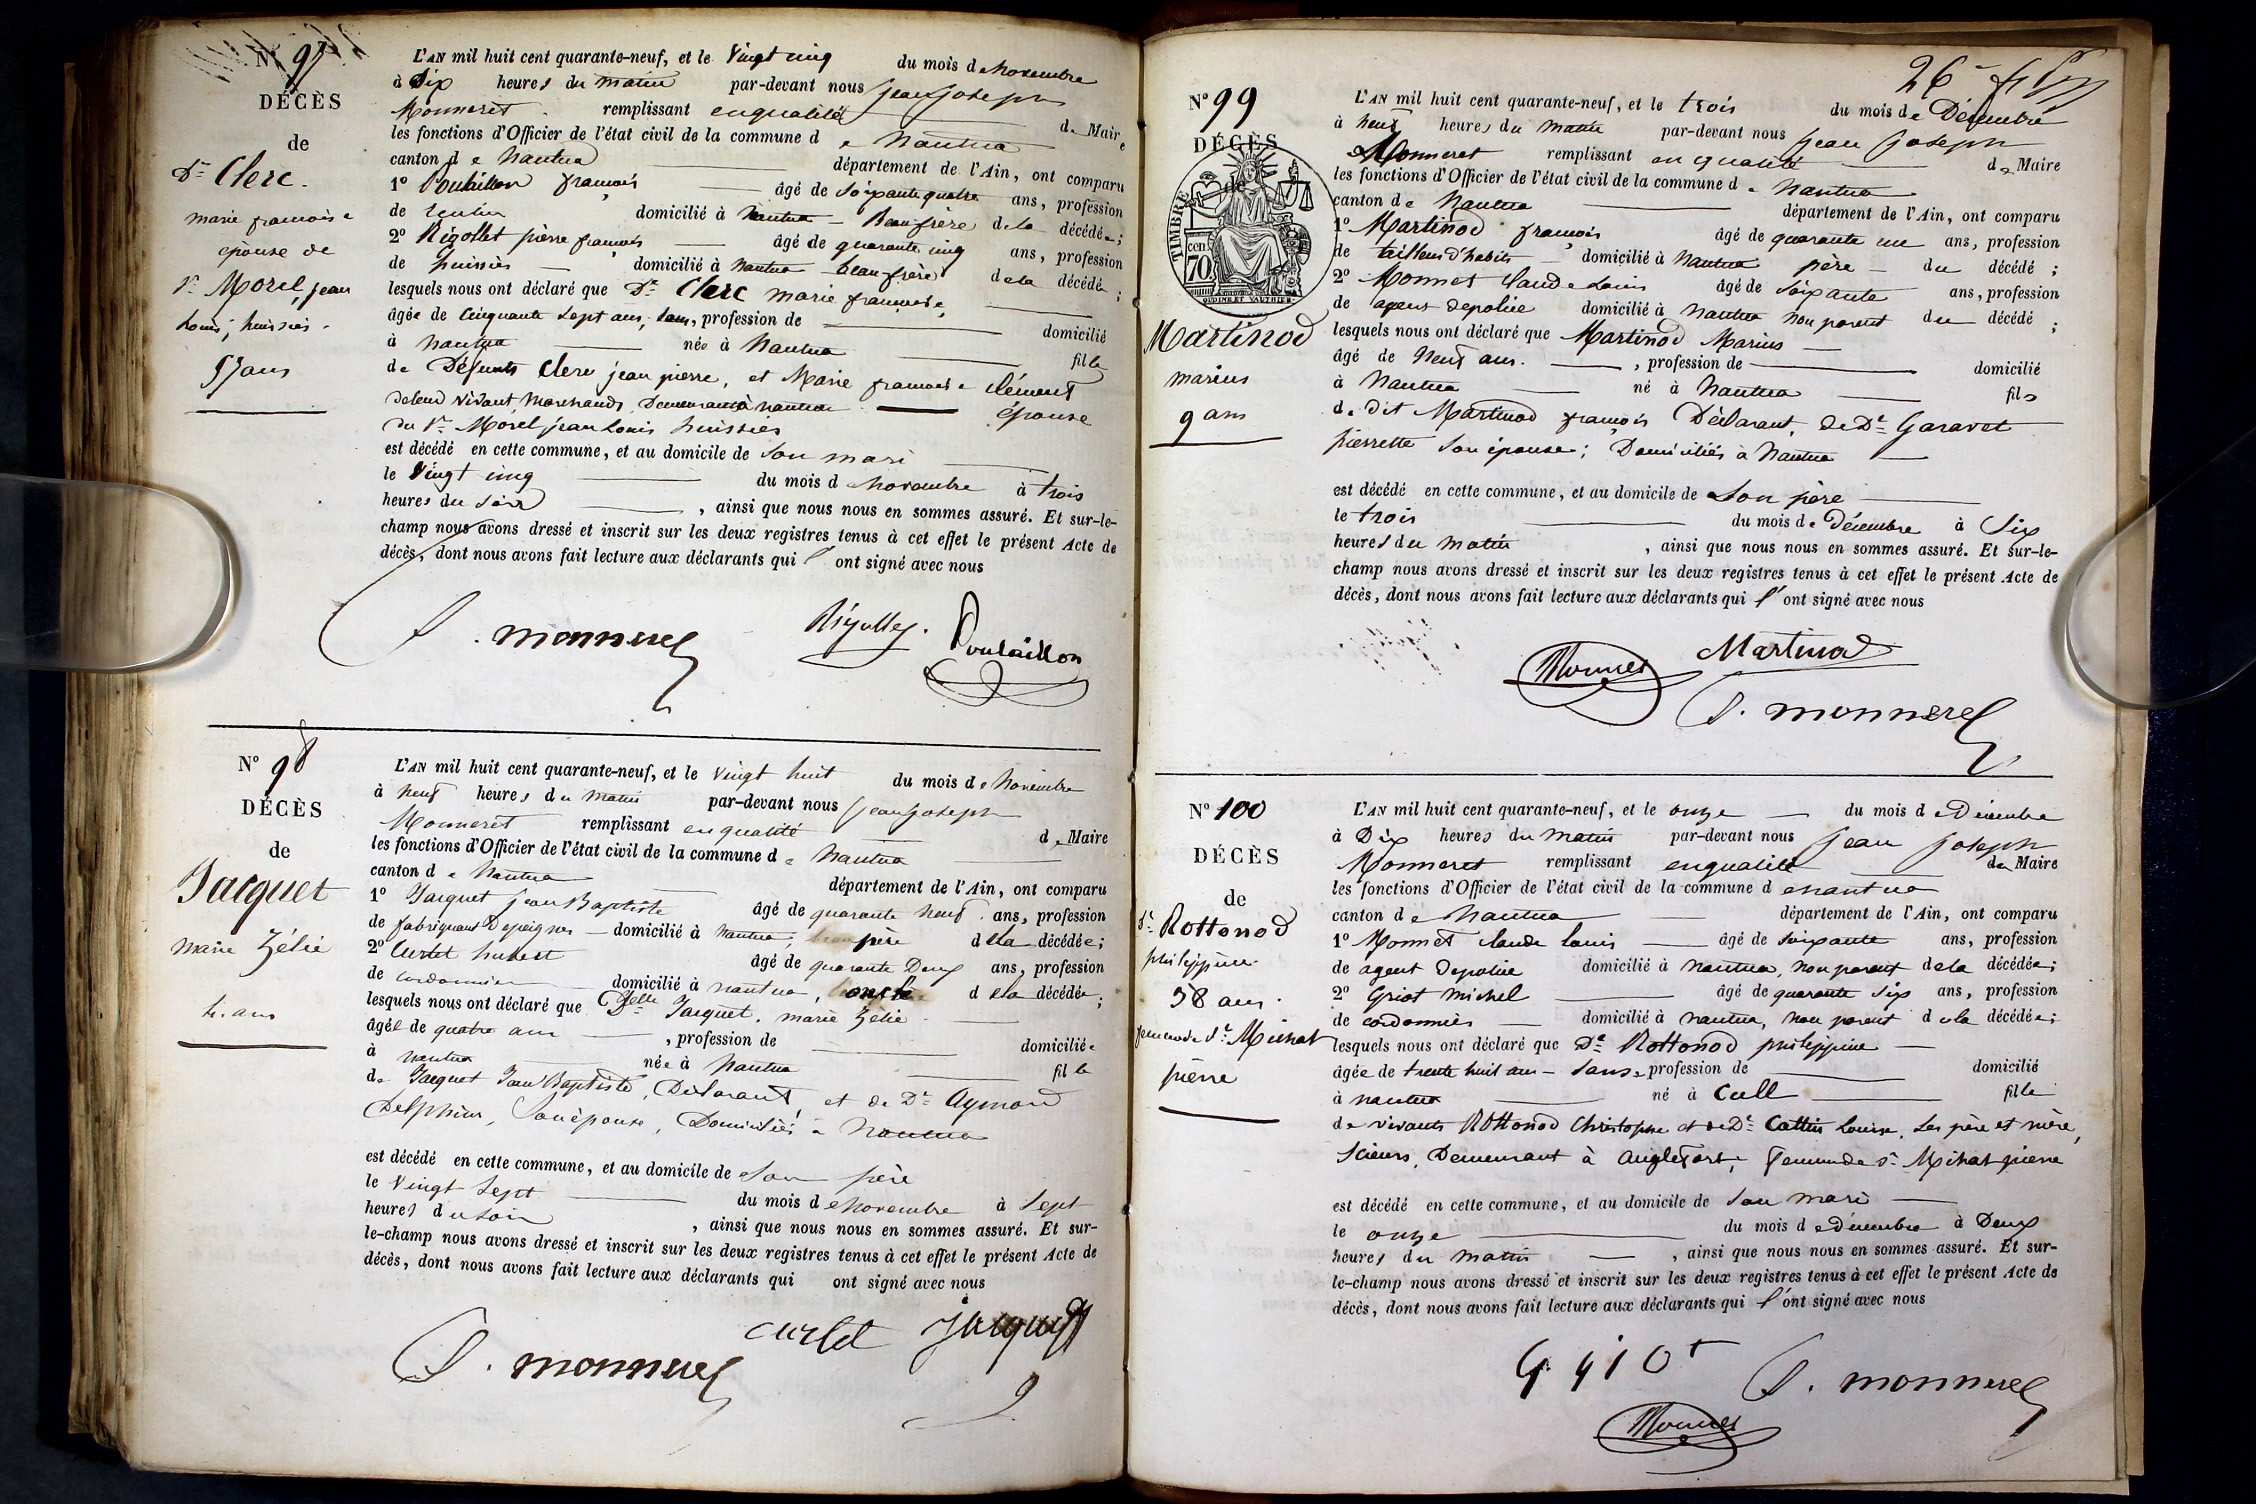 Nº 97
DÉCÈS
de
De Clerc.
marie françoise
épouse de
Sr Morel, jean
Louis, huissier.
57 ans
L'AN mil huit cent quarante-neuf, et le vingt cinq du mois de novembre
à Six heures du matin par-devant nous jean joseph
Monneret remplissant en qualité de Maire
les fonctions d'Officier de l'état civil de la commune de Nantua
canton de Nantua département de l'Ain, ont comparu
1º Poulaillon françois âgé de soixante quatre ans, profession
de rentier domicilié à Nantua Beau frère de la décédée;
2º Rigollet pierre françois âgé de quarante cinq ans, profession
de huissier domicilié à Nantua beau frère de la décédée;
lesquels nous ont déclaré que De Clerc marie françoise,
âgée de Cinquante sept ans, sans profession de domicilié
à Nantua née à Nantua fille
de Défunts Clerc jean pierre, et Marie françoise Clément
de leur vivant Marchands, Demeurant à nantua épouse
du Sr Morel jean Louis huissier
est décédé en cette commune, et au domicile de son mari
le Vingt cinq du mois de novembre à trois
heures du soir, ainsi que nous nous en sommes assuré. Et sur-le-
champ nous avons dressé et inscrit sur les deux registres tenus à cet effet le présent Acte de
décès, dont nous avons fait lecture aux déclarants qui l'ont signé avec nous
J. monneret Rigollet. Poulaillon
Nº 98
DÉCÈS
de
Jacquet
marie Zélie
4. ans
L'AN mil huit cent quarante-neuf, et le vingt huit du mois de Novembre
à neuf heures du matin par-devant nous jean joseph
Monneret remplissant en qualité de Maire
les fonctions d'Officier de l'état civil de la commune de Nantua
canton de Nantua département de l'Ain, ont comparu
1º Jacquet jean Baptiste âgé de quarante neuf ans, profession
de fabriquant Depeignes domicilié à nantua; père de la décédée;
2º Curtet hubert âgé de quarante Deux ans, profession
de cordonnier domicilié à nantua, oncle de la décédée;
lesquels nous ont déclaré que Delle Jacquet. marie Zélie
âgée de quatre ans, profession de domiciliée
à nantua née à Nantua fille
de Jacquet Jean Baptiste, Déclarant, et de De Aymard
Delphine, Son épouse, Domiciliés à Nantua
est décédé en cette commune, et au domicile de son père
le Vingt Sept du mois de novembre à Sept
heures du soir, ainsi que nous nous en sommes assuré. Et sur-
le-champ nous avons dressé et inscrit sur les deux registres tenus à cet effet le présent Acte de
décès, dont nous avons fait lecture aux déclarants qui ont signé avec nous
curtet Jacquet
J. monneret
26
Nº 99
DÉCÈS
de
TIMBRE
70 cen
OUDINE ET VAUTHIER
Martinod
marius
9 ans
L'AN mil huit cent quarante-neuf, et le trois du mois de Décembre
à neuf heures du matin par-devant nous jean joseph
Monneret remplissant en qualité de Maire
les fonctions d'Officier de l'état civil de la commune de Nantua
canton de Nantua département de l'Ain, ont comparu
1º Martinod françois âgé de quarante un ans, profession
de tailleur d'habits domicilié à Nantua père du décédé;
2º Monnet Claude Louis âgé de soixante ans, profession
de agent de police domicilié à Nantua non parent du décédé;
lesquels nous ont déclaré que Martinod Marius
âgé de Neuf ans., profession de domicilié
à Nantua né à Nantua fils
de dit Martinod françois Déclarant, de De Garavet
pierrette son épouse; Domiciliés à Nantua
est décédé en cette commune, et au domicile de son père
le trois du mois de Décembre à Six
heures du matin, ainsi que nous nous en sommes assuré. Et sur-le-
champ nous avons dressé et inscrit sur les deux registres tenus à cet effet le présent Acte de
décès, dont nous avons fait lecture aux déclarants qui l'ont signé avec nous
Monnet Martinod
J. monneret
Nº 100
DÉCÈS
de
De Rottonod
philippine
38 ans.
femme de Sr Michat
pierre
L'AN mil huit cent quarante-neuf, et le onze du mois de Décembre
à Dix heures du matin par-devant nous jean joseph
Monneret remplissant en qualité de Maire
les fonctions d'Officier de l'état civil de la commune de nantua
canton de Nantua département de l'Ain, ont comparu
1º Monnet Claude Louis âgé de soixante ans, profession
de agent de police domicilié à Nantua, non parent de la décédée;
2º Griot Michel âgé de quarante six ans, profession
de cordonnier domicilié à nantua, non parent de la décédée;
lesquels nous ont déclaré que De Rottonod philippine
âgée de trente huit ans - sans profession de domicilié
à nantua né à Cull fille
de vivants Rottonod Christophe et de De Cattin Louise, Les père et mère,
Scieurs, Demeurant à Anglefort, femme de Sr Michat pierre
est décédé en cette commune, et au domicile de son mari
le onze du mois de Décembre à Deux
heures du matin, ainsi que nous nous en sommes assuré. Et sur-
le-champ nous avons dressé et inscrit sur les deux registres tenus à cet effet le présent Acte de
décès, dont nous avons fait lecture aux déclarants qui l'ont signé avec nous
Griot J. monneret
Monnet